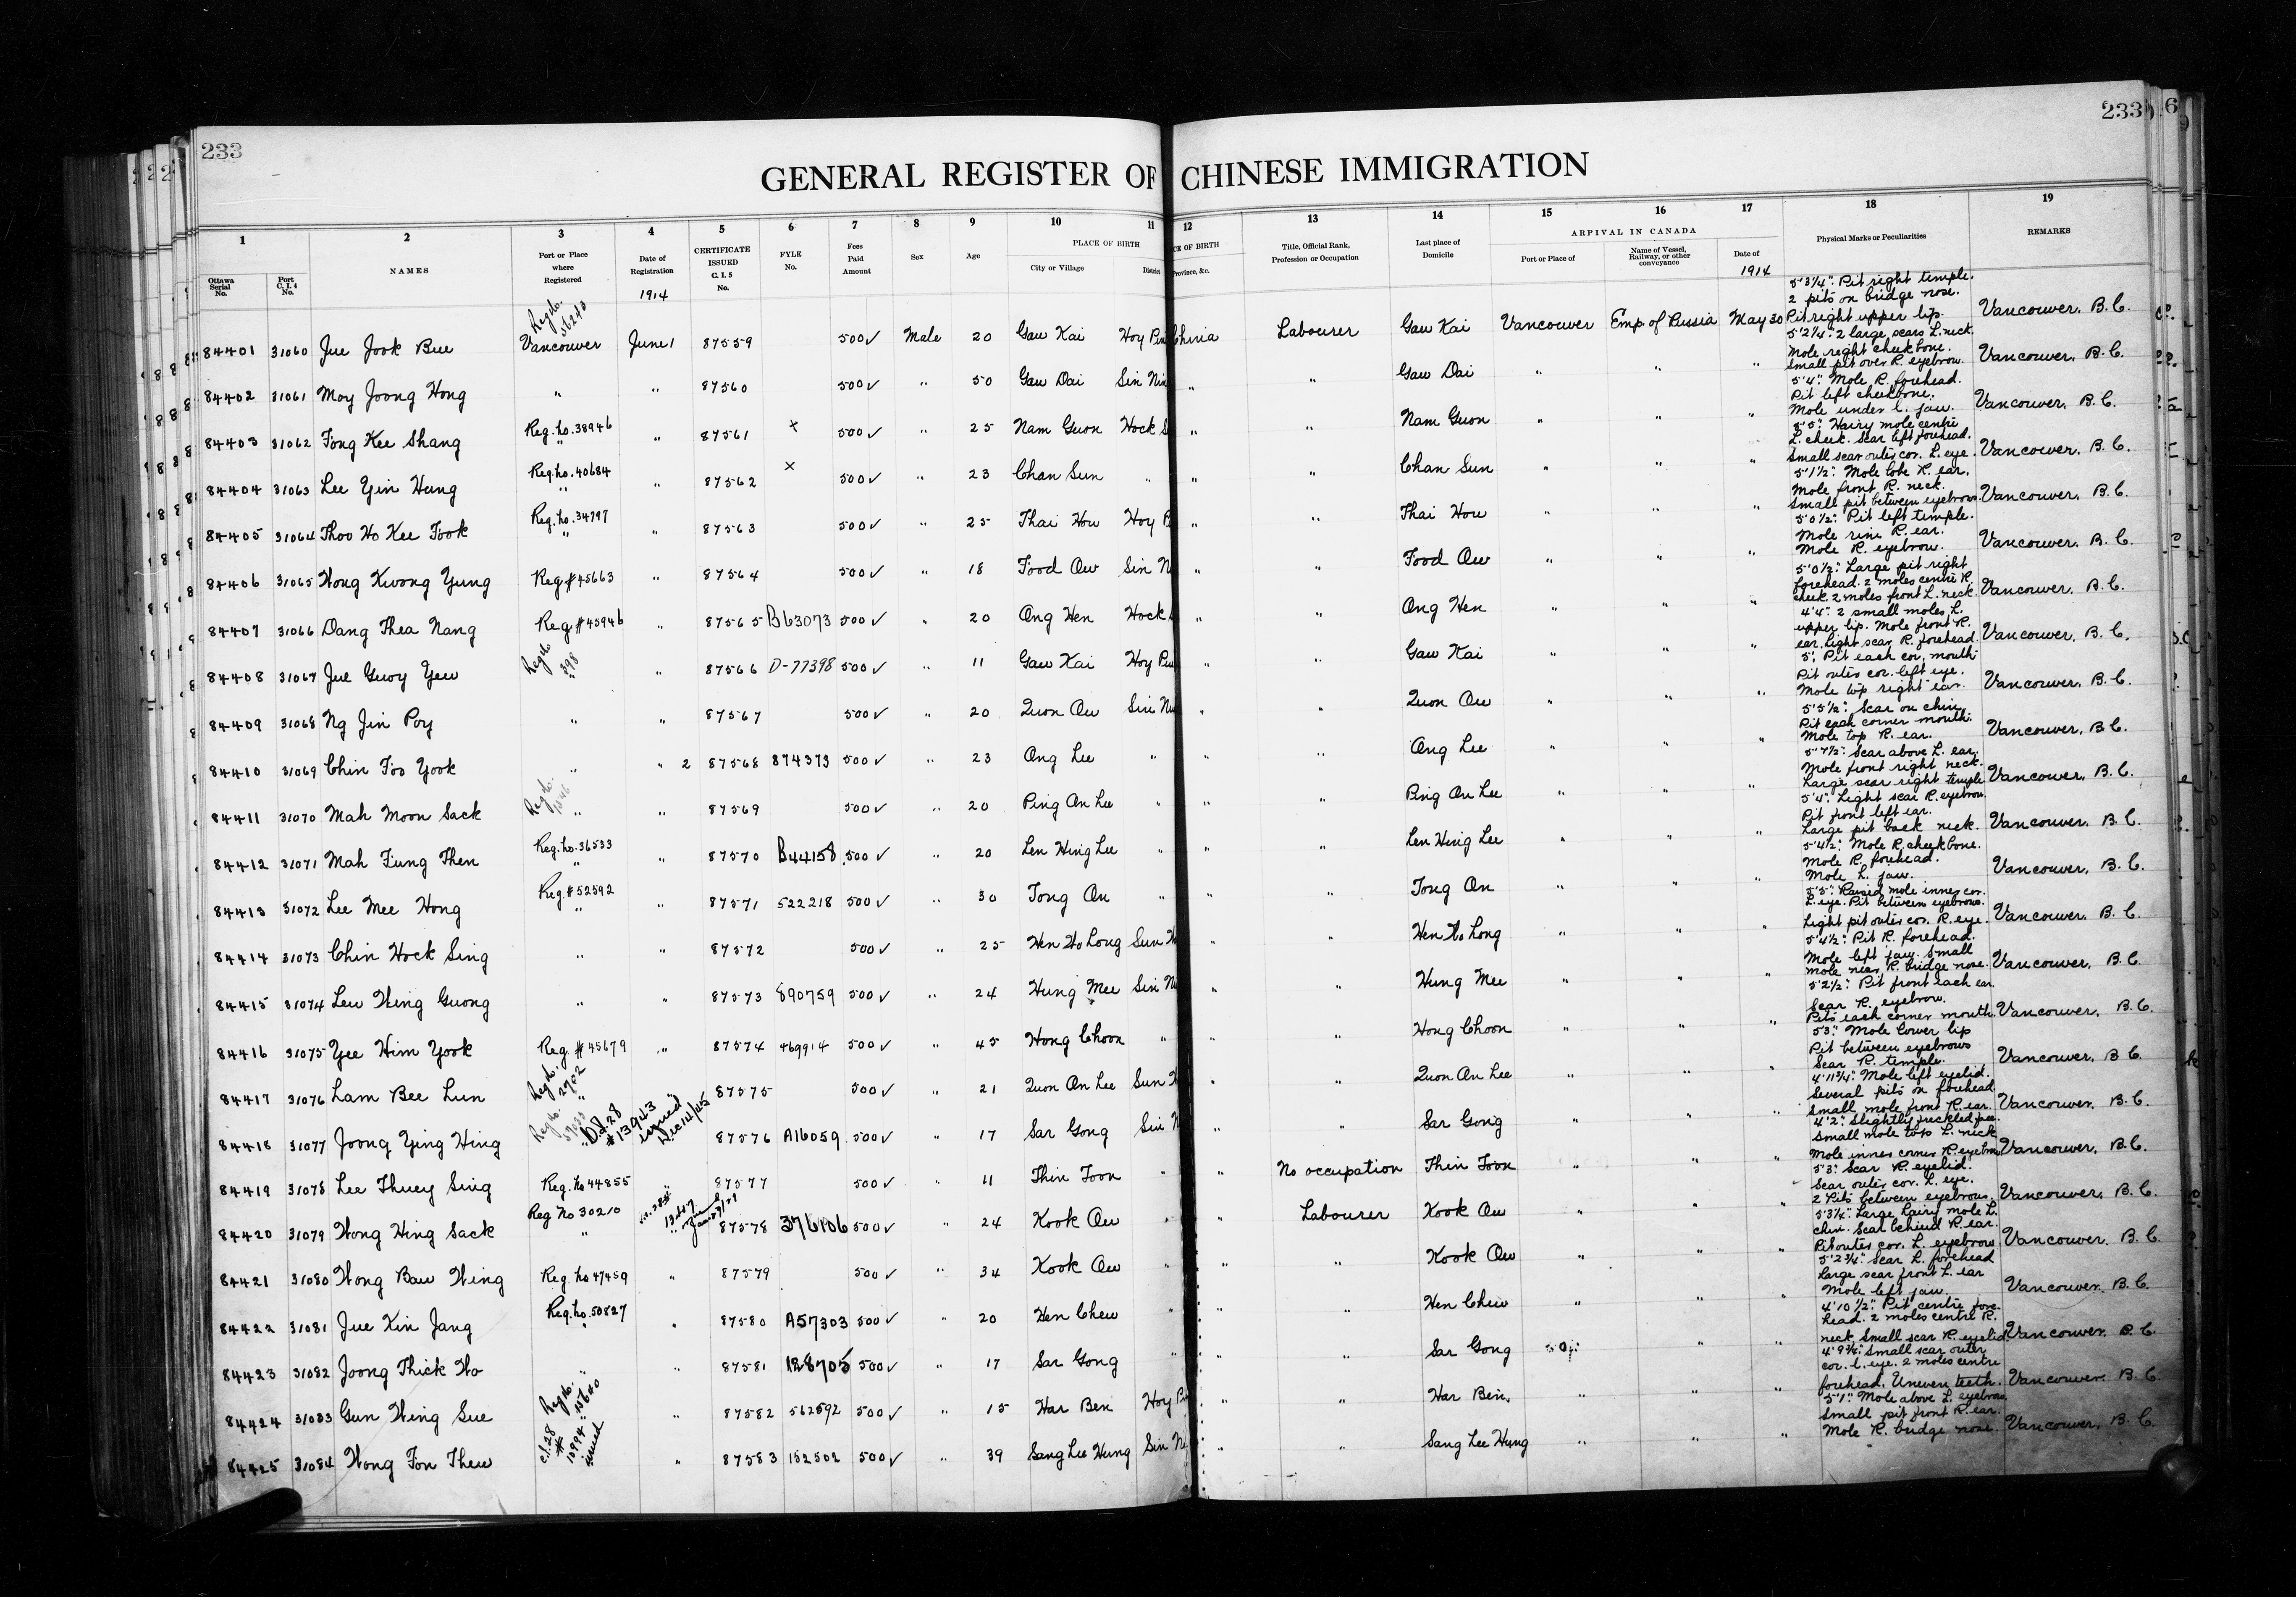 233
233
6
GENERAL REGISTER OF CHINESE IMMIGRATION
1 2 3 4 5 6 7 8 9 10 11 12 13 14 15 16 17 18 19
Ottawa Serial No.
Port C. I. 4 No.
NAMES
Port or Place where Registered
Date of Registration
1914
CERTIFICATE ISSUED C. I. 5 No.
FYLE No.
Fees Paid Amount
Sex
Age
PLACE OF BIRTH
City or Village
District
CE OF BIRTH
Province, &c.
Title, Official Rank, Profession or Occupation
Last place of Domicile
ARRIVAL IN CANADA
Port or Place of
Name of Vessel, Railway, or other conveyance
Date of
1914
Physical Marks or Peculiarities
REMARKS
84401 31060 Jue Jook Bue Reg. No. 36243 Vancouver June 1 87559 500✓ Male 20 Gau Kai Hoy Pin China Labourer Gau Kai Vancouver Emp of Russia May 30 5'3¼": Pit right temple. 2 pits on bridge nose. Pit right upper lip. Vancouver, B.C.
84402 31061 Moy Joong Hong " " 87560 500✓ " 50 Gau Dai Sin Nin " " Gau Dai " " " 5'2¼": 2 large scars L. neck. Mole right cheekbone. Small pit over R. eyebrow. Vancouver, B.C.
84403 31062 Fong Kee Shang Reg. No. 38946 " " 87561 x 500✓ " 25 Nam Guon Hock S " " Nam Guon " " " 5'4": Mole R. forehead. Pit left cheekbone. Mole under L. jaw. Vancouver, B.C.
84404 31063 Lee Yin Hung Reg. No. 40684 " " 87562 x 500✓ " 23 Chan Sun " " " Chan Sun " " " 5'5": Hairy mole centre L. cheek. Scar left forehead. Small scar outer cor. L. eye. Vancouver, B.C.
84405 31064 Thoo Ho Kee Fook Reg. No. 34797 " " 87563 500✓ " 25 Thai Hou Hoy P " " Thai Hou " " " 5'1½": Mole lobe R. ear. Mole front R. neck. Small pit between eyebrows. Vancouver, B.C.
84406 31065 Wong Kwong Yung Reg # 45663 " 87564 500✓ " 18 Food Ow Sin N " " Food Ow " " " 5'0½": Pit left temple. Mole rim R. ear. Mole R. eyebrow. Vancouver, B.C.
84407 31066 Dang Thea Nang Reg # 45946 " 87565 B63073 500✓ " 20 Ong Hen Hock S " " Ong Hen " " " 5'0½": Large pit right forehead. 2 moles centre R. cheek. 2 moles front L. neck. Vancouver, B.C.
84408 31067 Jue Guoy Yew Reg No 398 " " 87566 D-77398 500✓ " 11 Gau Kai Hoy Pin " " Gau Kai " " " 4'4": 2 small moles L. upper lip. Mole front R. ear. Light scar R. forehead. Vancouver, B.C.
84409 31068 Ng Jin Poy " " 87567 500✓ " 20 Quon Ow Sin Nin " " Quon Ow " " " 5': Pit each cor. mouth. Pit outer cor. left eye. Mole top right ear. Vancouver, B.C.
84410 31069 Chin Foo Yook " " 2 87568 874373 500✓ " 23 Ong Lee " " " Ong Lee " " " 5'5½": Scar on chin. Pit each corner mouth. Mole top R. ear. Vancouver, B.C.
84411 31070 Mah Moon Sack Reg No. " " 87569 500✓ " 20 Ping On Lee " " " Ping On Lee " " " 5'7½": Scar above L. ear. Mole front right neck. Large scar right temple. Vancouver, B.C.
84412 31071 Mah Fung Then Reg. No. 36533 " " 87570 B44158 500✓ " 20 Len Hing Lee " " " Len Hing Lee " " " 5'4": Light scar R. eyebrow. Pit front left ear. Large pit back neck. Vancouver, B.C.
84413 31072 Lee Mee Hong Reg. # 52592 " " 87571 522218 500✓ " 30 Tong On " " " Tong On " " " 5'4½": Mole R. cheekbone. Mole R. forehead. Mole L. jaw. Vancouver, B.C.
84414 31073 Chin Hock Sing " " 87572 500✓ " 25 Hen Ho Long Sun " " Hen Ho Long " " " 5'5": Raised mole inner cor. L. eye. Pit between eyebrows. Light pit outer cor. R. eye. Vancouver, B.C.
84415 31074 Lew Hing Guong " " 87573 890759 500✓ " 24 Hung Mee Sin Nin " " Hung Mee " " " 5'4½": Pit R. forehead. Mole left jaw. Small mole near R. bridge nose. Vancouver, B.C.
84416 31075 Yee Him Yook Reg. # 45679 " 87574 469914 500✓ " 45 Hong Choon " " " Hong Choon " " " 5'2½": Pit front each ear. Scar R. eyebrow. Pits each corner mouth. Vancouver, B.C.
84417 31076 Lam Bee Lun Reg No. 2702 " 87575 500✓ " 21 Quon On Lee Sun " " Quon On Lee " " " 5'3": Mole lower lip Pit between eyebrows Scar R. temple. Vancouver, B.C.
84418 31077 Joong Ying Hing Reg No. # 13943 issued Dec 14/45 87576 A16059 500✓ " 17 Sar Gong Sin N " " Sar Gong " " " 4'11¾": Mole left eyelid. Several pits on forehead. Small mole front R. ear. Vancouver, B.C.
84419 31078 Lee Thuey Sing Reg. No 44855 " 87577 500✓ " 11 Thin Toon " " No occupation Thin Toon " " " 4'2": Slightly freckled face. Small mole top L. neck. Mole inner corner R. eyebrow. Vancouver, B.C.
84420 31079 Wong Hing Sack Reg No 30210 " 87578 376106 500✓ " 24 Kook Ow " " Labourer Kook Ow " " " 5'3": Scar R. eyelid. Scar outer cor. L. eye. 2 Pits between eyebrows. Vancouver, B.C.
84421 31080 Wong Bau Hing Reg. No 47459 " 87579 500✓ " 34 Kook Ow " " " Kook Ow " " " 5'3¼": Large hairy mole L. chin. Scar behind R. ear. Pit outer cor. L. eyebrow Vancouver, B.C.
84422 31081 Jue Kin Jang Reg. No. 50827 " " 87580 A57303 500✓ " 20 Hen Chew " " " Hen Chew " " " 5'2¾": Scar L. forehead Large scar front L. ear Mole left jaw. Vancouver, B.C.
84423 31082 Joong Thick Ho " " 87581 128705 500✓ " 17 Sar Gong " " " Sar Gong " " 4'10½": Pit centre forehead. 2 moles centre R. neck. Small scar R. eyelid. Vancouver, B.C.
84424 31083 Gun Hing Sue Reg No. " " 87582 562592 500✓ " 15 Har Ben Hoy Pin " " Har Ben " " " 4'9¾": Small scar outer cor. L. eye. 2 moles centre forehead. Uneven teeth. Vancouver, B.C.
84425 31084 Wong Fon Thew c.I.28 # 10994 issued " 87583 152502 500✓ " 39 Sang Lee Hung Sin Ni " " Sang Lee Hung " " " 5'1": Mole above L. eyebrow. Small pit front R. ear. Mole R. bridge nose. Vancouver, B.C.